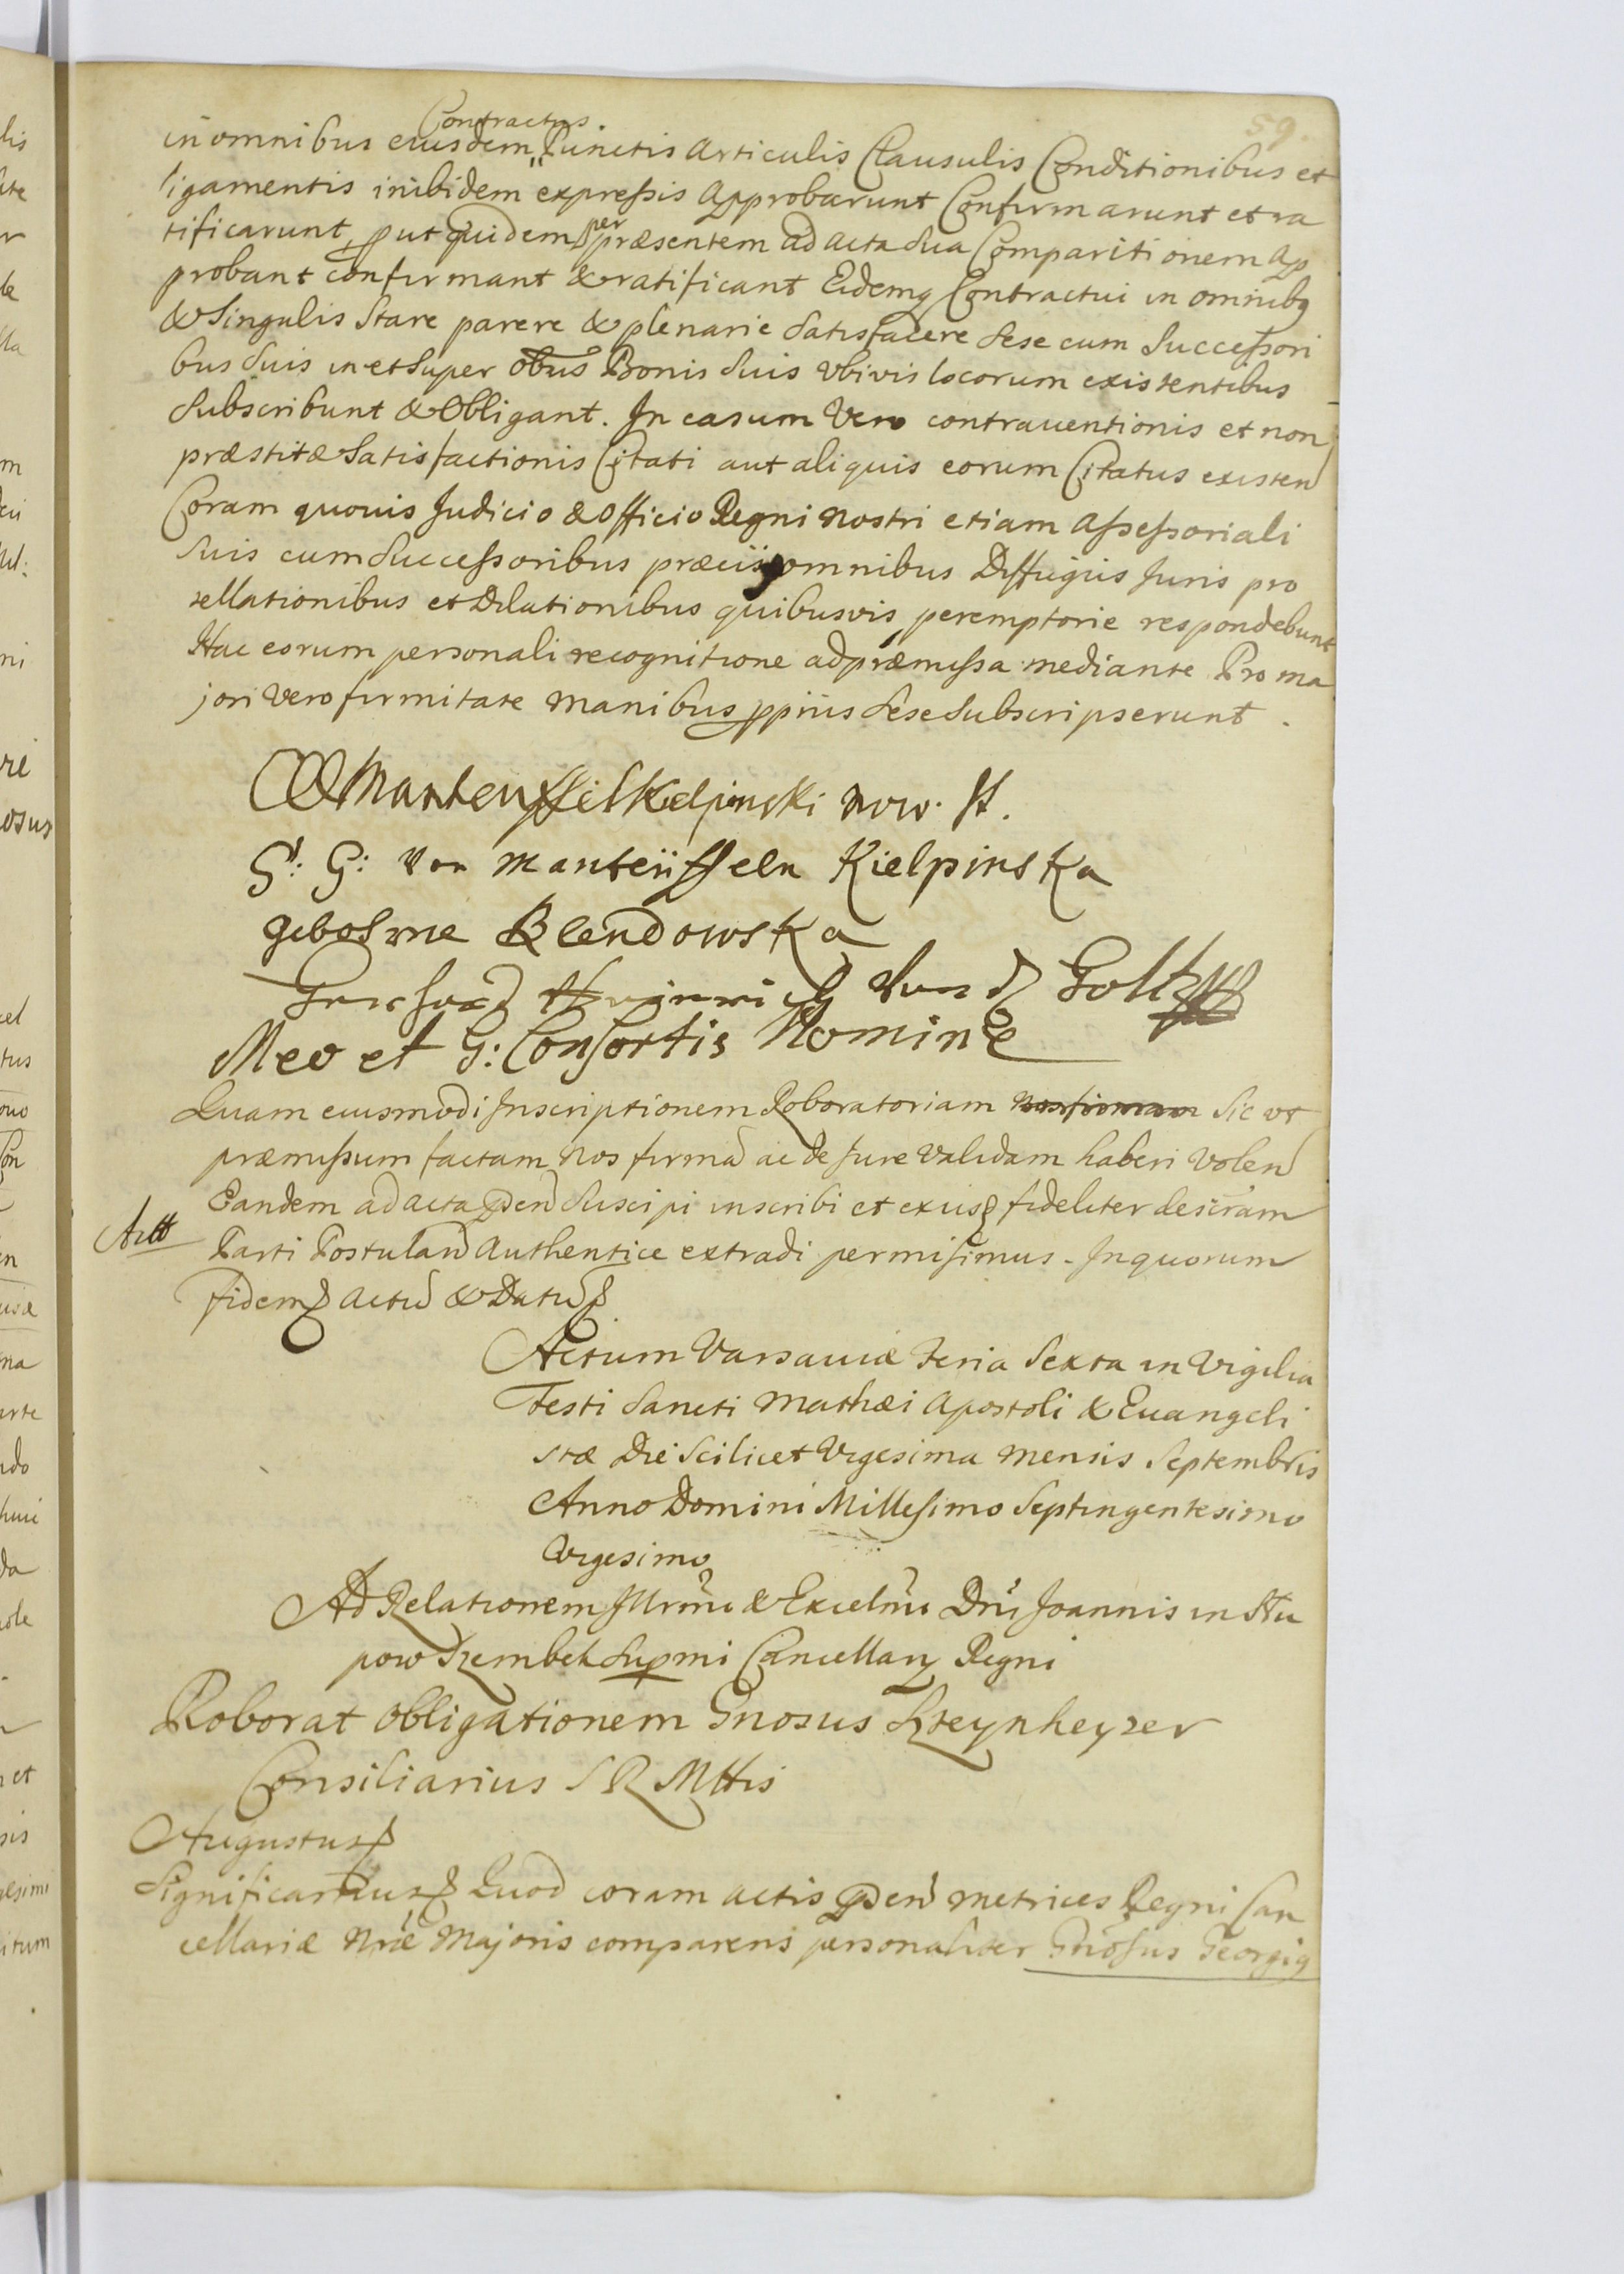 59.
Contractus
in omnibus eiusdem Punctis Articulis Clausulis Conditionibus et
ligamentis inibidem expressis Approbarunt Confirmarunt et ra
tificarunt, put quidem per præsentem ad acta sua Comparitionem Ap
probant confirmant & ratificant Eidemq Contractui in omnibq
& Singulis stare parere & plenarie satisfacere sese cum Successori
bus suis in et super obus Bonis suis vbivis locorum existentibus
Subscribunt & Obligant. In casum Vero contrauentionis et non
præstitæ Satisfactionis Citati aut aliquis eorum Citatus existen
Coram quouis Judicio & Officio Regni nostri etiam Assessoriali
Suis cum Successoribus præcijs omnibus Diffugijs Juris pro
tellationibus et Dilationibus quibusvis, peremptorie respondebunt
Hac eorum personali recognitione ad præmissa mediante Pro ma
jori vero firmitate manibus ppriis sese Subscripserunt.
Manteuffel Kielpinski
G: G: Von Manteüffeln Kielpinska
gebohrne Blendowska
Heinrich Von d Goltz
Meo et G: Consortis Nomine
Quam eiusmodi Inscriptionem Roboratoriam Sic vt
præmissum factam nos firmã ac de Jure validam haberi volen
Eandem ad acta pden Suscipi inscribi et exius fideliter descram
Parti Postulan Authentice extradi permisimus. In quorum
fidem Actu & Datu
Actum Varsauiæ Feria Sexta in Vigilia
Festi Sancti Mathæi Apostoli & Euangeli
stæ Die Scilicet Vigesima mensis Septembris
Anno Domini Millesimo Septingentesimo
Vigesimo
Ad Relationem Illrmi & Excelmi Dni Joannis in Słu
pow Szembek Supmi Cancellarij Regni
Roborat Obligationem Gnosus Szteynheyzer
Consiliarius S R Mttis
Augustus
Significamus Quod coram actis pden metrices Regni Can
cellariæ Nræ Majoris comparens personaliter Gnosus Georgiq